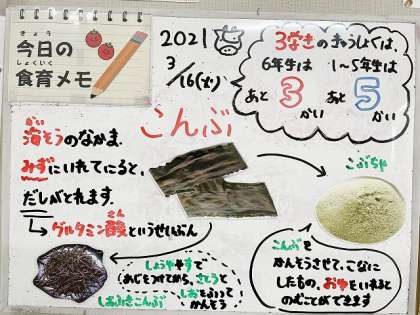 きょう
今日の
しょくいく
食育メモ
2021
3/16(火)
3学きのきゅうしょくは、
6年生は
1～5年生は
あと3かい
あと5かい
こんぶ
かい
海そうのなかま。
みずにいれてにると、
だしがとれます。
さん
グルタミン酸というせいぶん
こぶちゃ
しおふきこんぶ
しょうゆやすで
あじをつけてから、さとうと
しおをふって
かんそう
こんぶを
かんそうさせて、こなに
したもの。おゆをいれると
のむことができます